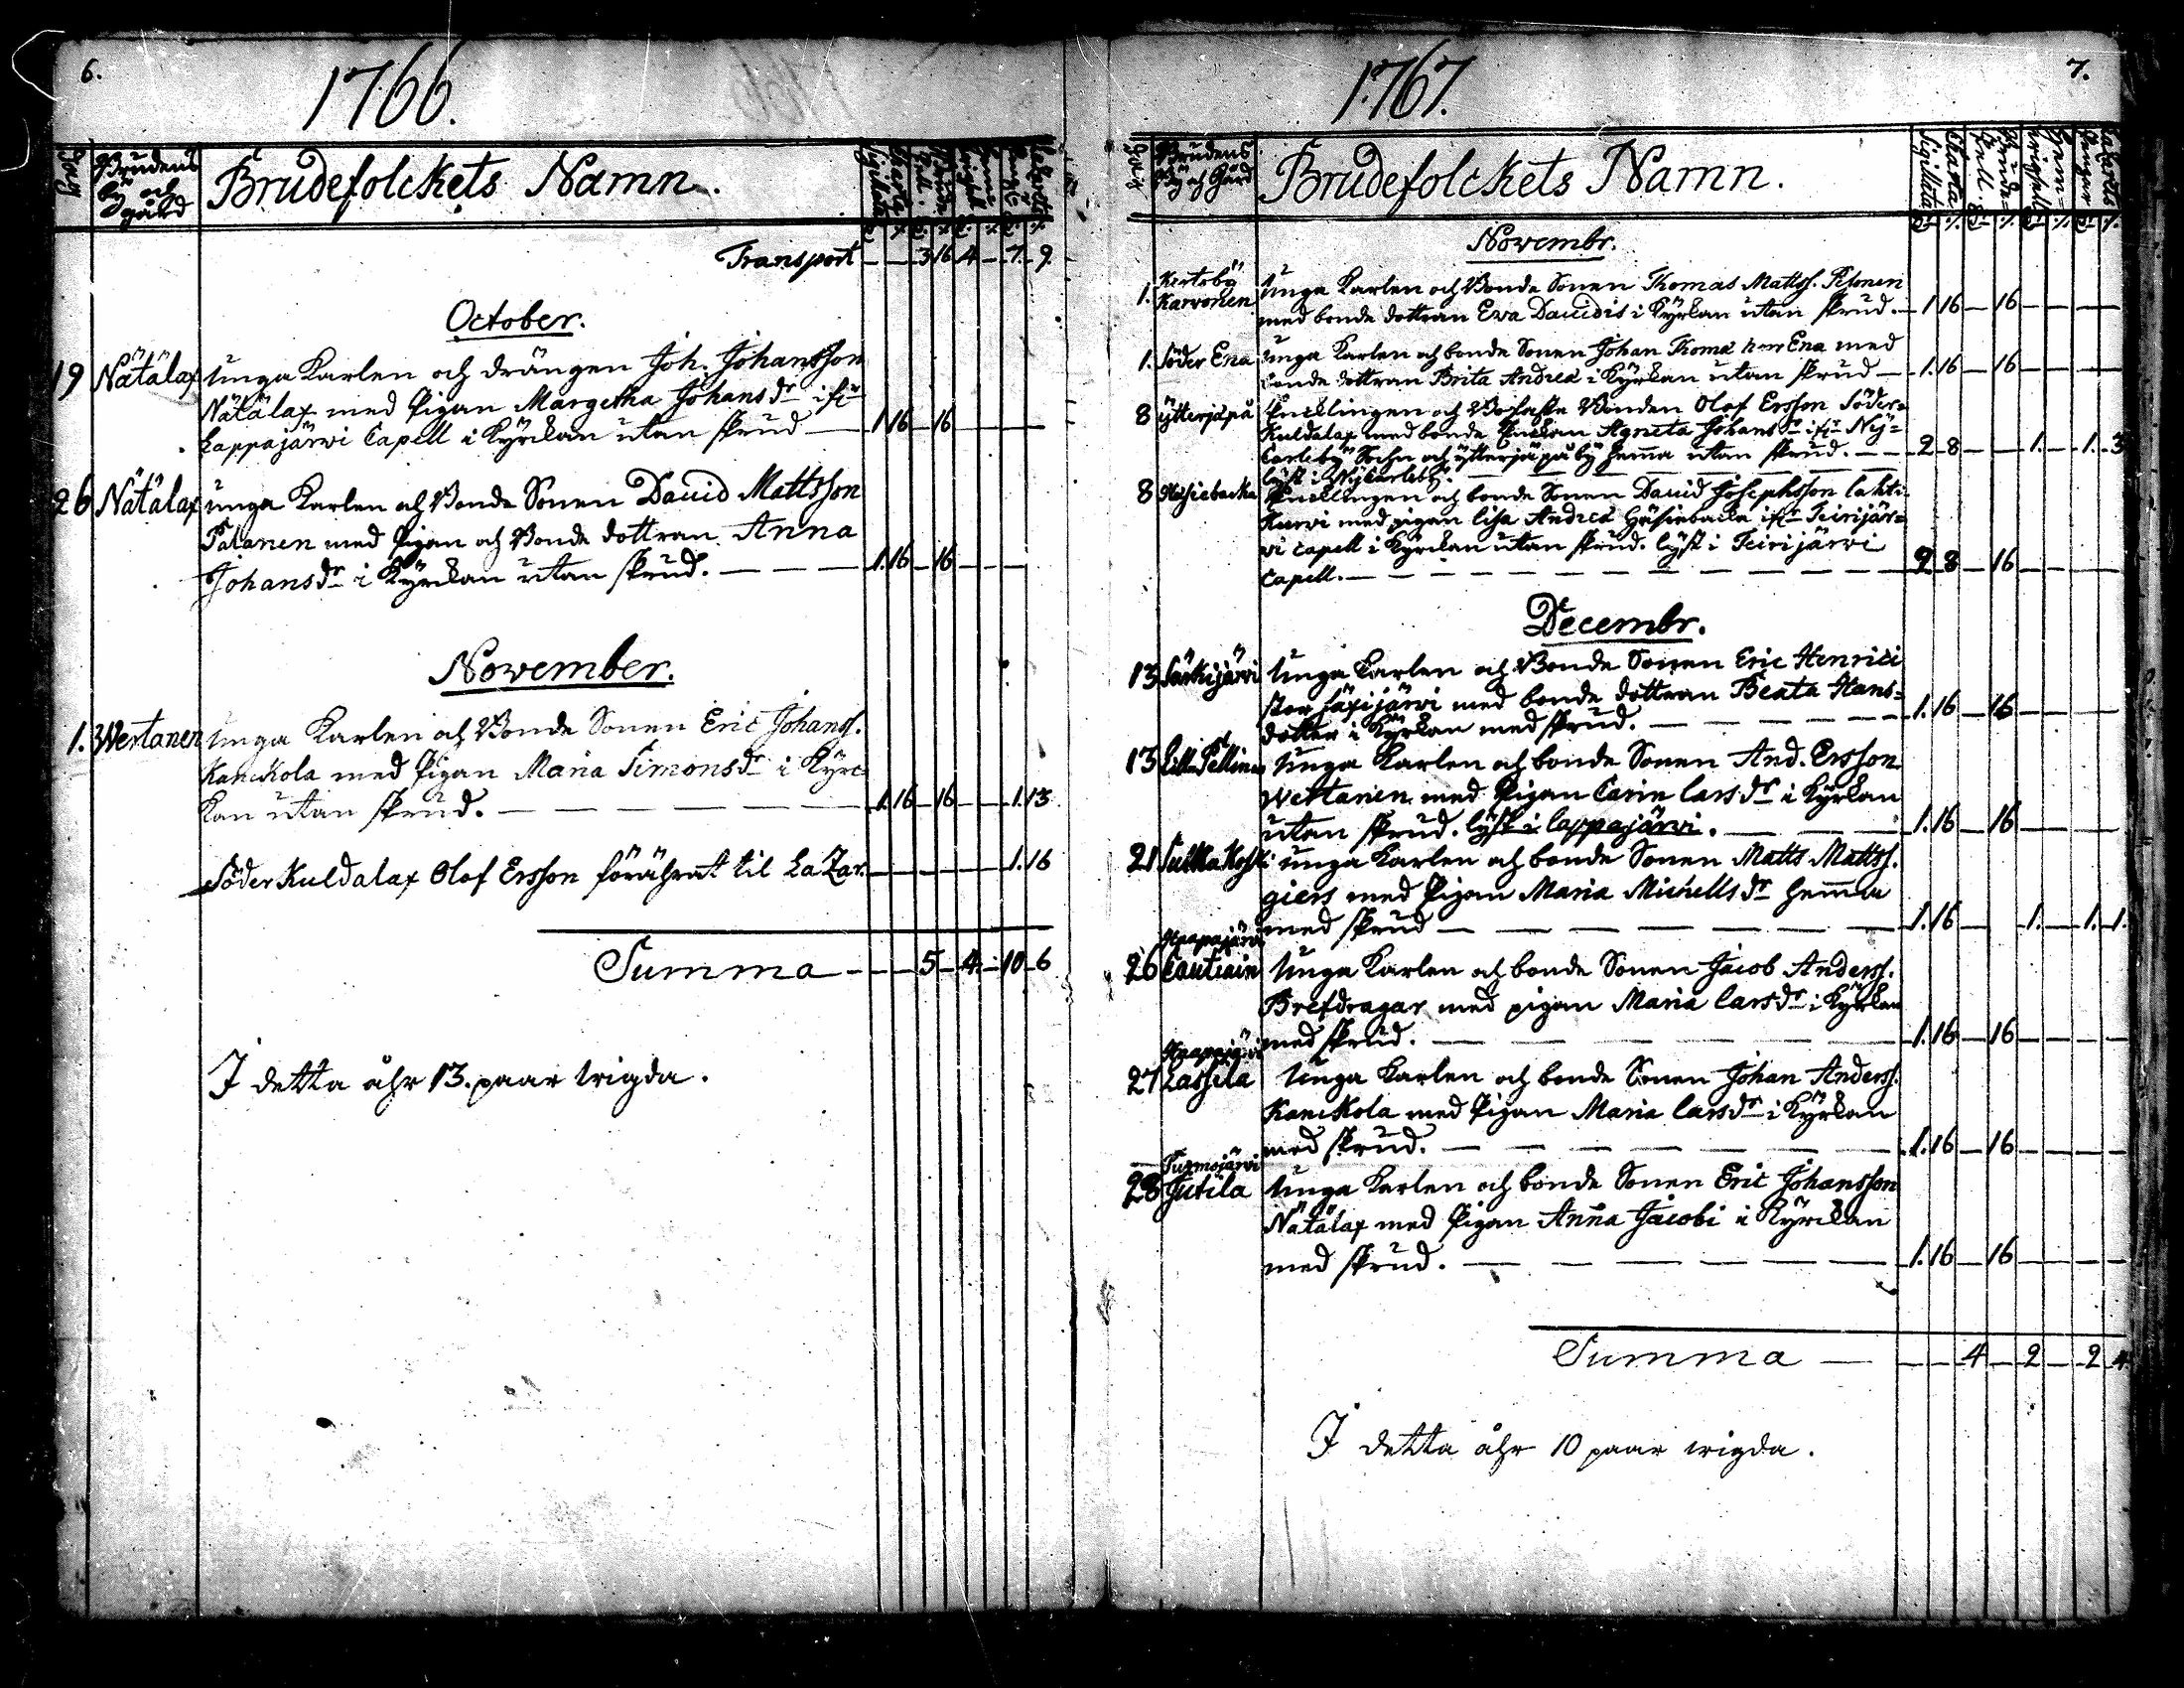 6.
1766.
Brudens
by och
gård
Brudefolckets Namn.
Transport — — 3 16 4 — 7 9
October.
19 Nätälax Unga Karlen och drängen Joh. Johansson
Nätälax med Pigan Margetha Johans dr ifr
Lappajärwi Capell i Kyrckan utan skrud — 1 16 — 16 — — — —
26 Nätälax unga Karlen och Bonde Sonen David Mattsson
Palanen med Pigan och Bonde dottran Anna
Johans dr i Kyrckan utan skrud. — — — 1. 16 — 16 — — — —
November.
1. Wertanen Unga Karlen och Bonde Sonen Eric Johanss.
Kanckola med Pigan Maria Simons dr i Kyrc-
kan utan skrud. — — — 1. 16 — 16 — — 1. 13
Söder Kuldalax Olof Ersson förährat til LaZar. — — — — — — 1. 16
Summa — — — 5 — 4 — 10 6
I detta åhr 13. paar wigda.
7.
1767.
Brudens
By och Gård
Brudefolckets Namn.
Novembr.
1. Kerteby
Karvonen Unga Karlen och Bonde Sonen Thomas Mattss. Pesonen
med bonde dottran Eva Davidis i Kyrkan utan skrud. — 1 16 — 16 — — — —
1. Söder Ena Unga Karlen och bonde Sonen Johan Thomæ norr Ena med
bonde dottran Brita Andreæ i Kyrkan utan skrud — 1. 16 — 16 — — — —
8 ytterjäpå Encklingen och Bofaste Bonden Olof Ersson Söder=
Kuldalax med bonde Enckan Agneta Johans dr ifr Ny=
Carleby Sochn och ytterjäpå by hemma utan skrud. — — 2 8 — — 1. — 1. 3
lyst i Nykarleby.
8 Häsiebacka Encklingen och bonde Sonen David Josephsson Lahti
Kurvi med pigan Lisa Andreæ Häsiebacka ifr Teirijär=
vi Capell i Kyrckan utan skrud. lyst i Teirijärvi
Capell. — — — 2 8 — 16 — — — —
Decembr.
13 Särkijärvi Unga Karlen och Bonde Sonen Eric Henrici
stor Säxijärvi med bonde dottran Beata Hans=
dotter i Kyrkan med skrud. — — — 1. 16 — 16 — — — —
13 Lill Pellinen Unga Karlen och bonde Sonen And. Ersson
Wertanen med Pigan Carin Lars dr i Kyrkan
utan skrud. lyst i Lappajärvi. — — 1. 16 — 16 — — — —
21 Sulka Koski unga Karlen och bonde Sonen Matts Mattss.
giers med Pigan Maria Michells dr hemma
med skrud — — — 1. 16 — — 1. — 1. 1.
26 Haapajärvi
Cautiain Unga Karlen och bonde Sonen Jacob Anderss.
Brefdragar med pigan Maria Lars dr i Kyrkan
med skrud. — — — 1. 16 — 16 — — — —
27 Haapajärvi
Lassila Unga Karlen och bonde Sonen Johan Anderss.
Kanckola med Pigan Maria Lars dr i Kyrkan
med skrud. — — — 1. 16 — 16 — — — —
28 Purmojärvi
Jutila Unga Karlen och bonde Sonen Eric Johansson
Nätälax med Pigan Anna Jacobi i Kyrckan
med skrud. — — — 1. 16 — 16 — — — —
Summa — — — 4 — 2 — 2 4.
I detta åhr 10 paar wigda.